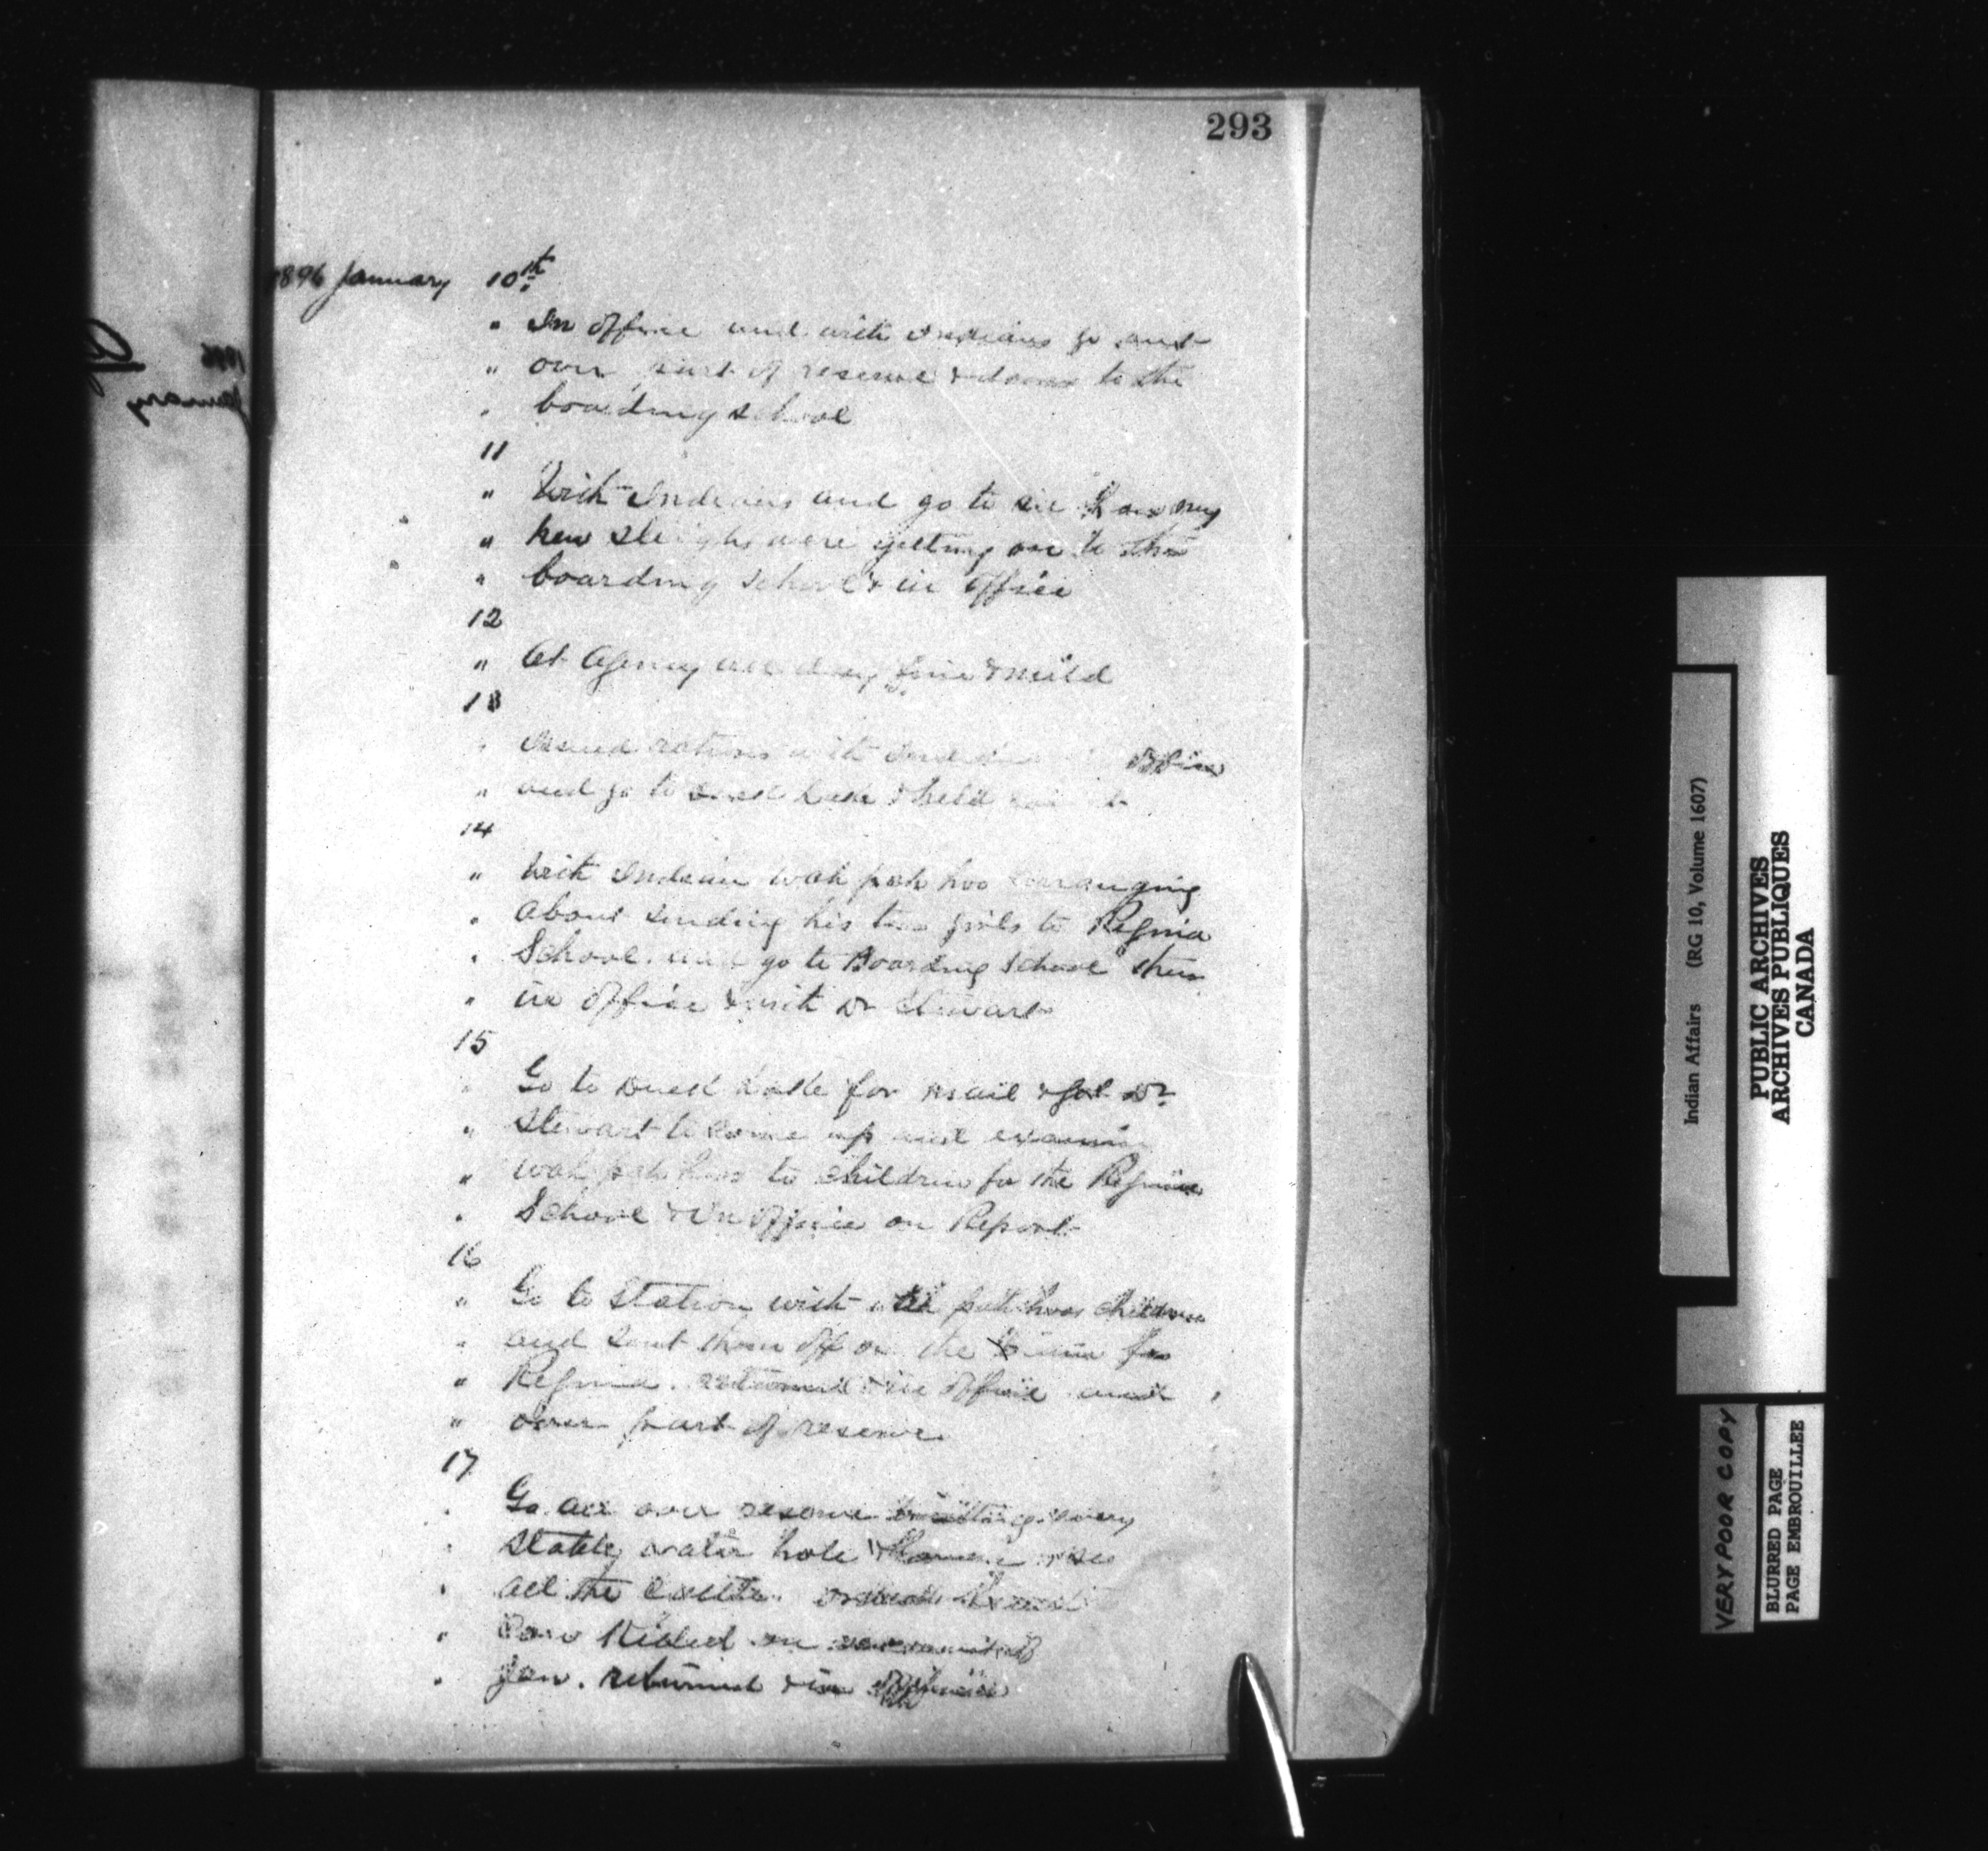 293
1896 January 10th
" In office and with Indians go out
" over part of reserve & down to the
" boarding school
11
" With Indians and go to see how my
" new sleighs were getting on to the
" boarding school & in office
12
" At Agency all day fine & mild
13
" Issued rations with office
" and go to Duck Lake & held
14
" With Indian Wah pah hoo arranging
" about sending his two girls to Regina
" School. and go to Boarding School then
" in office & with Dr Stewart
15
" Go to Duck Lake for mail & got Dr
" Stewart to come up and examine
" Wah pah hoos to children for the Regina
" School & in office on Report
16
" Go to Station with Wah pah hoos children
" and sent them off on the train for
" Regina. returned & in office and
" over part of reserve
17
" Go all over reserve every
" stable, water hole & house & see
" all the cattle.
" Cow killed on
" Jan. returned & in office
Indian Affairs (RG 10, Volume 1607)
PUBLIC ARCHIVES
ARCHIVES PUBLIQUES
CANADA
VERY POOR COPY
BLURRED PAGE
PAGE EMBROUILLEE